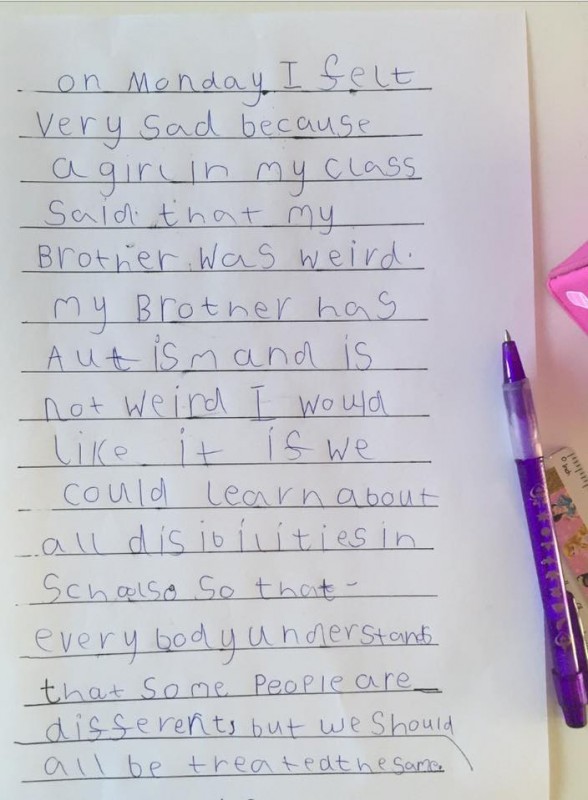 on Monday I felt
very sad because
a girl in my class
Said that my
Brother was weird.
my Brother has
Autism and is
not weird I would
like it if we
could learn about
all disibilities in
Schools So that
everybody understands
that Some People are
differents but we Should
all be treated the same.